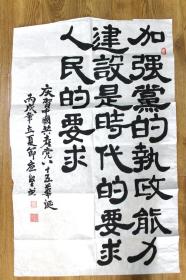 加强黨的執政能力
建設是時代的要求
人民的要求
庆賀中國共產党八十五華诞
丙戌年立夏節